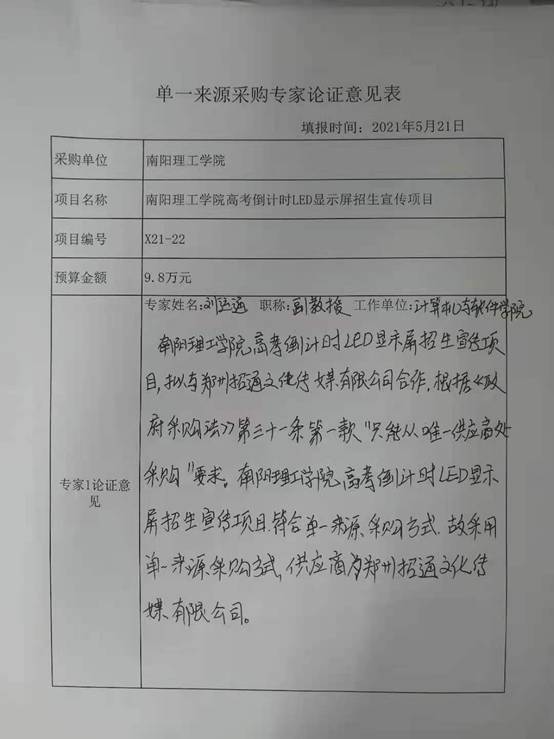 单一来源采购专家论证意见表
填报时间：2021年5月21日
采购单位 南阳理工学院
项目名称 南阳理工学院高考倒计时LED显示屏招生宣传项目
项目编号 X21-22
预算金额 9.8万元
专家姓名:刘运通 职称:副教授 工作单位:计算机与软件学院
专家1论证意见
南阳理工学院高考倒计时LED显示屏招生宣传项
目,拟与郑州招通文化传媒有限公司合作.根据《政
府采购法》第三十一条第一款"只能从唯一供应商处
采购"要求。南阳理工学院高考倒计时LED显示
屏招生宣传项目符合单一来源采购方式.故采用
单一来源采购方式,供应商为郑州招通文化传
媒有限公司。